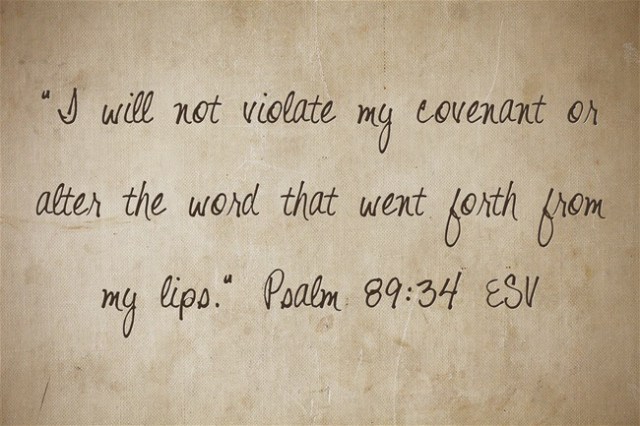 "I will not violate my covenant or
alter the word that went forth from
my lips." Psalm 89:34 ESV